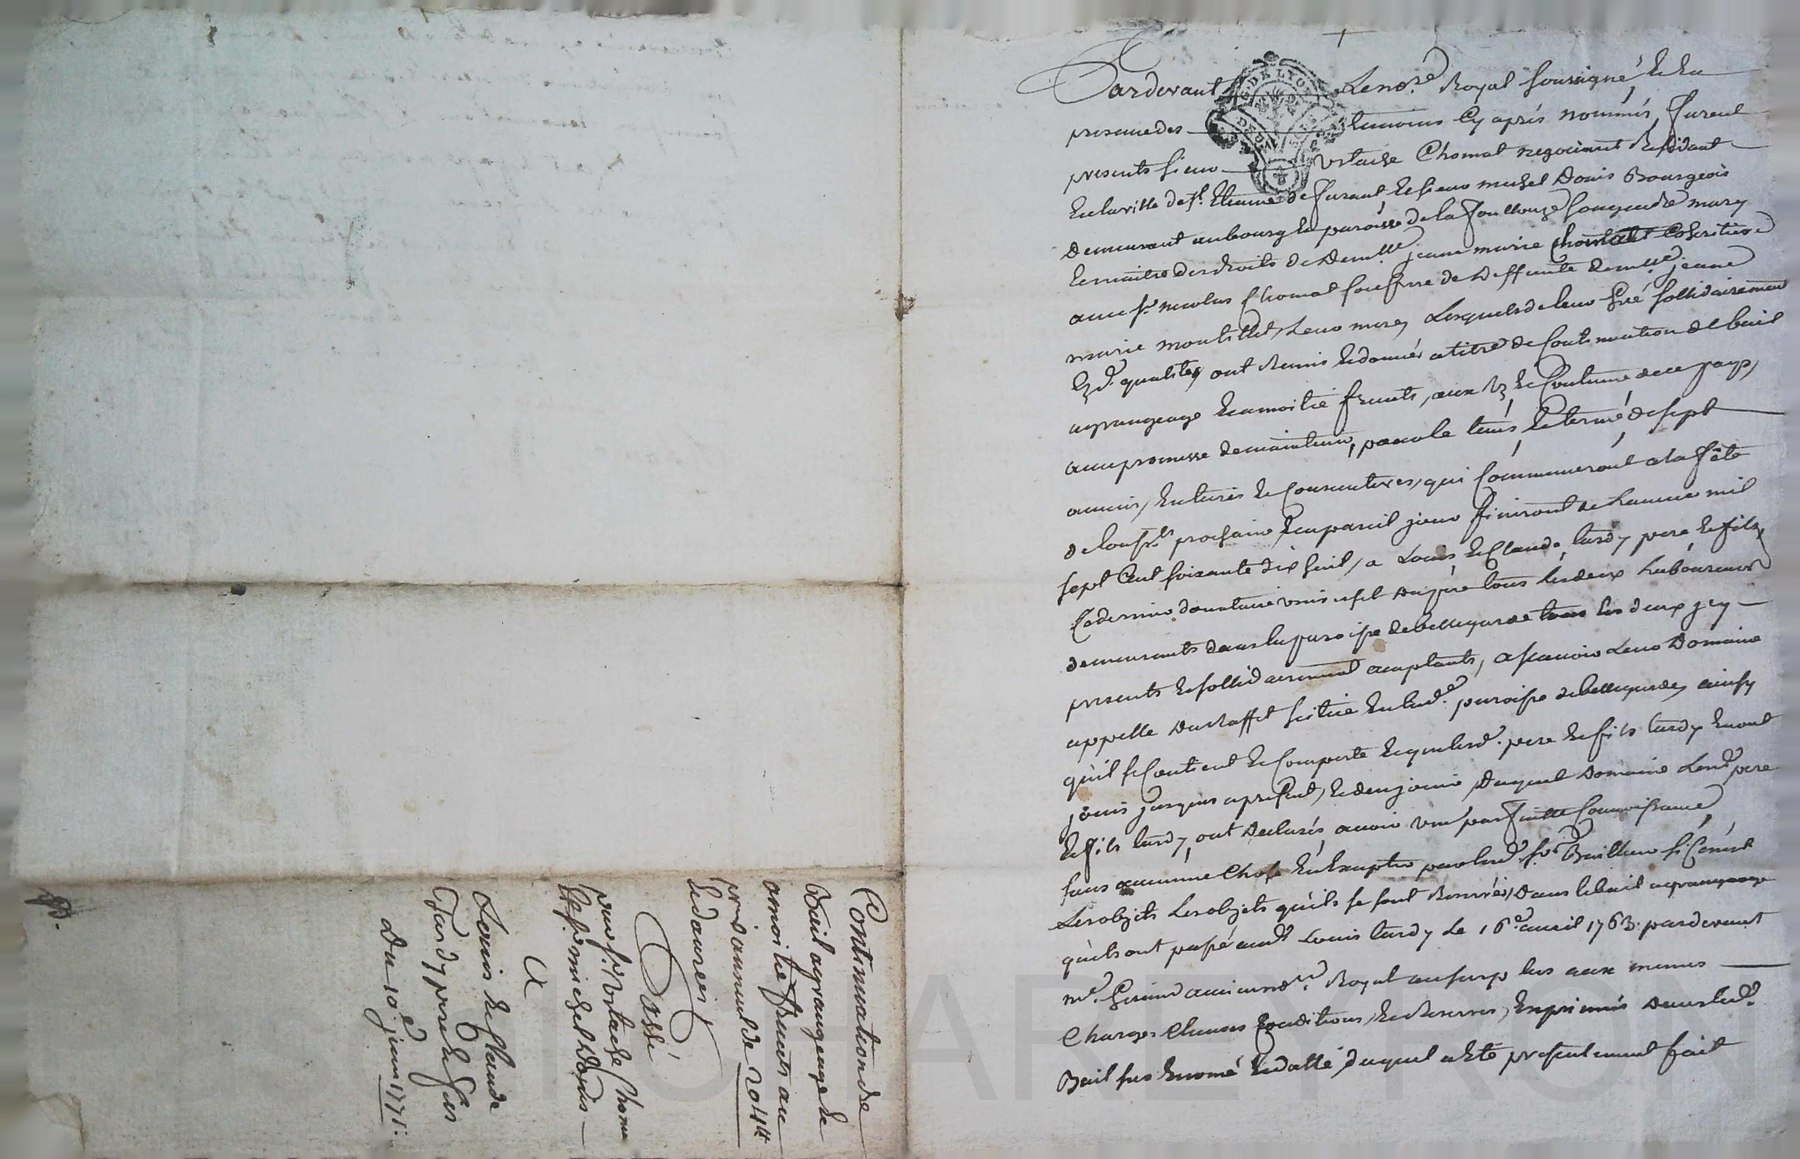 Pardevant Le no.re Royal soussigné, et en
presence des temoins cy après nommés, furent
presents sieur Ustache Chomat negociant Residant
en la ville de S.t Etienne de furant et sieur michel Donis Bourgeois
demeurant au bourg et paroisse de la foullouze comme mary
et maitre des droits de dem.lle jeanne marie Chomat coheritiere
avec s.r nicolas Chomat son frere de deffunte dem.lle jeanne
marie montillet, leur mere, Lesquels de leur gré sollidairement
et d. qualités ont Remis et donnés a titre de Continuation de bail
agrangeage et a moitié fruits, aux us et Coutume de ce pays,
avec promesse de maintenir, pour le tems, et terme de sept
années, entieres et Consecutives, qui Commenceront a la fête
de prochaine, et a pareil jour finiront de L'année mil
sept Cent soixante dix huit, a Louis et Claude tardy pere et fils,
Ce dernier donataire universel du pere tous les deux Laboureurs
demeurants dans la paroisse de bellegarde tous les deux icy
presents et sollidairement acceptants, a sçavoir Leur Domaine
appellé du Raffet situé en lad.e paroisse de bellegarde, ainsy
qu'il se Contient et Comporte et que lesd. pere et fils tardy en ont
jouis jusques a present, et en jouir, Duquel Domaine Lesd. pere
et fils tardy, ont declarés avoir une parfaitte Connoissance,
sans aucune Chose en excepter par lesd. s.rs Bailleurs si Ce n'est
Les objets Les objets qu'ils se sont Reservés, Dans le bail agrangeage
qu'ils ont passé aud. Louis tardy Le 16.e avril 1763. pardevant
m.e Girard ancien no.re Royal au surplus aux memes
Charges Clauses Conditions, et Reserves, Exprimés dans led.
Bail sus Enoncé et datté, duquel a été presentement fait
Continuation de
Bail agrangeage et
a moitié fruits au
prix annuel de 204tt
et danrées
Passé
par s.r Ustache Chomat
et s.r michel Donis
A
Louis et Claude
Tardy pere et fils
Du 10.e juin 1771.
G. DE LYON
LES CHAREYRON